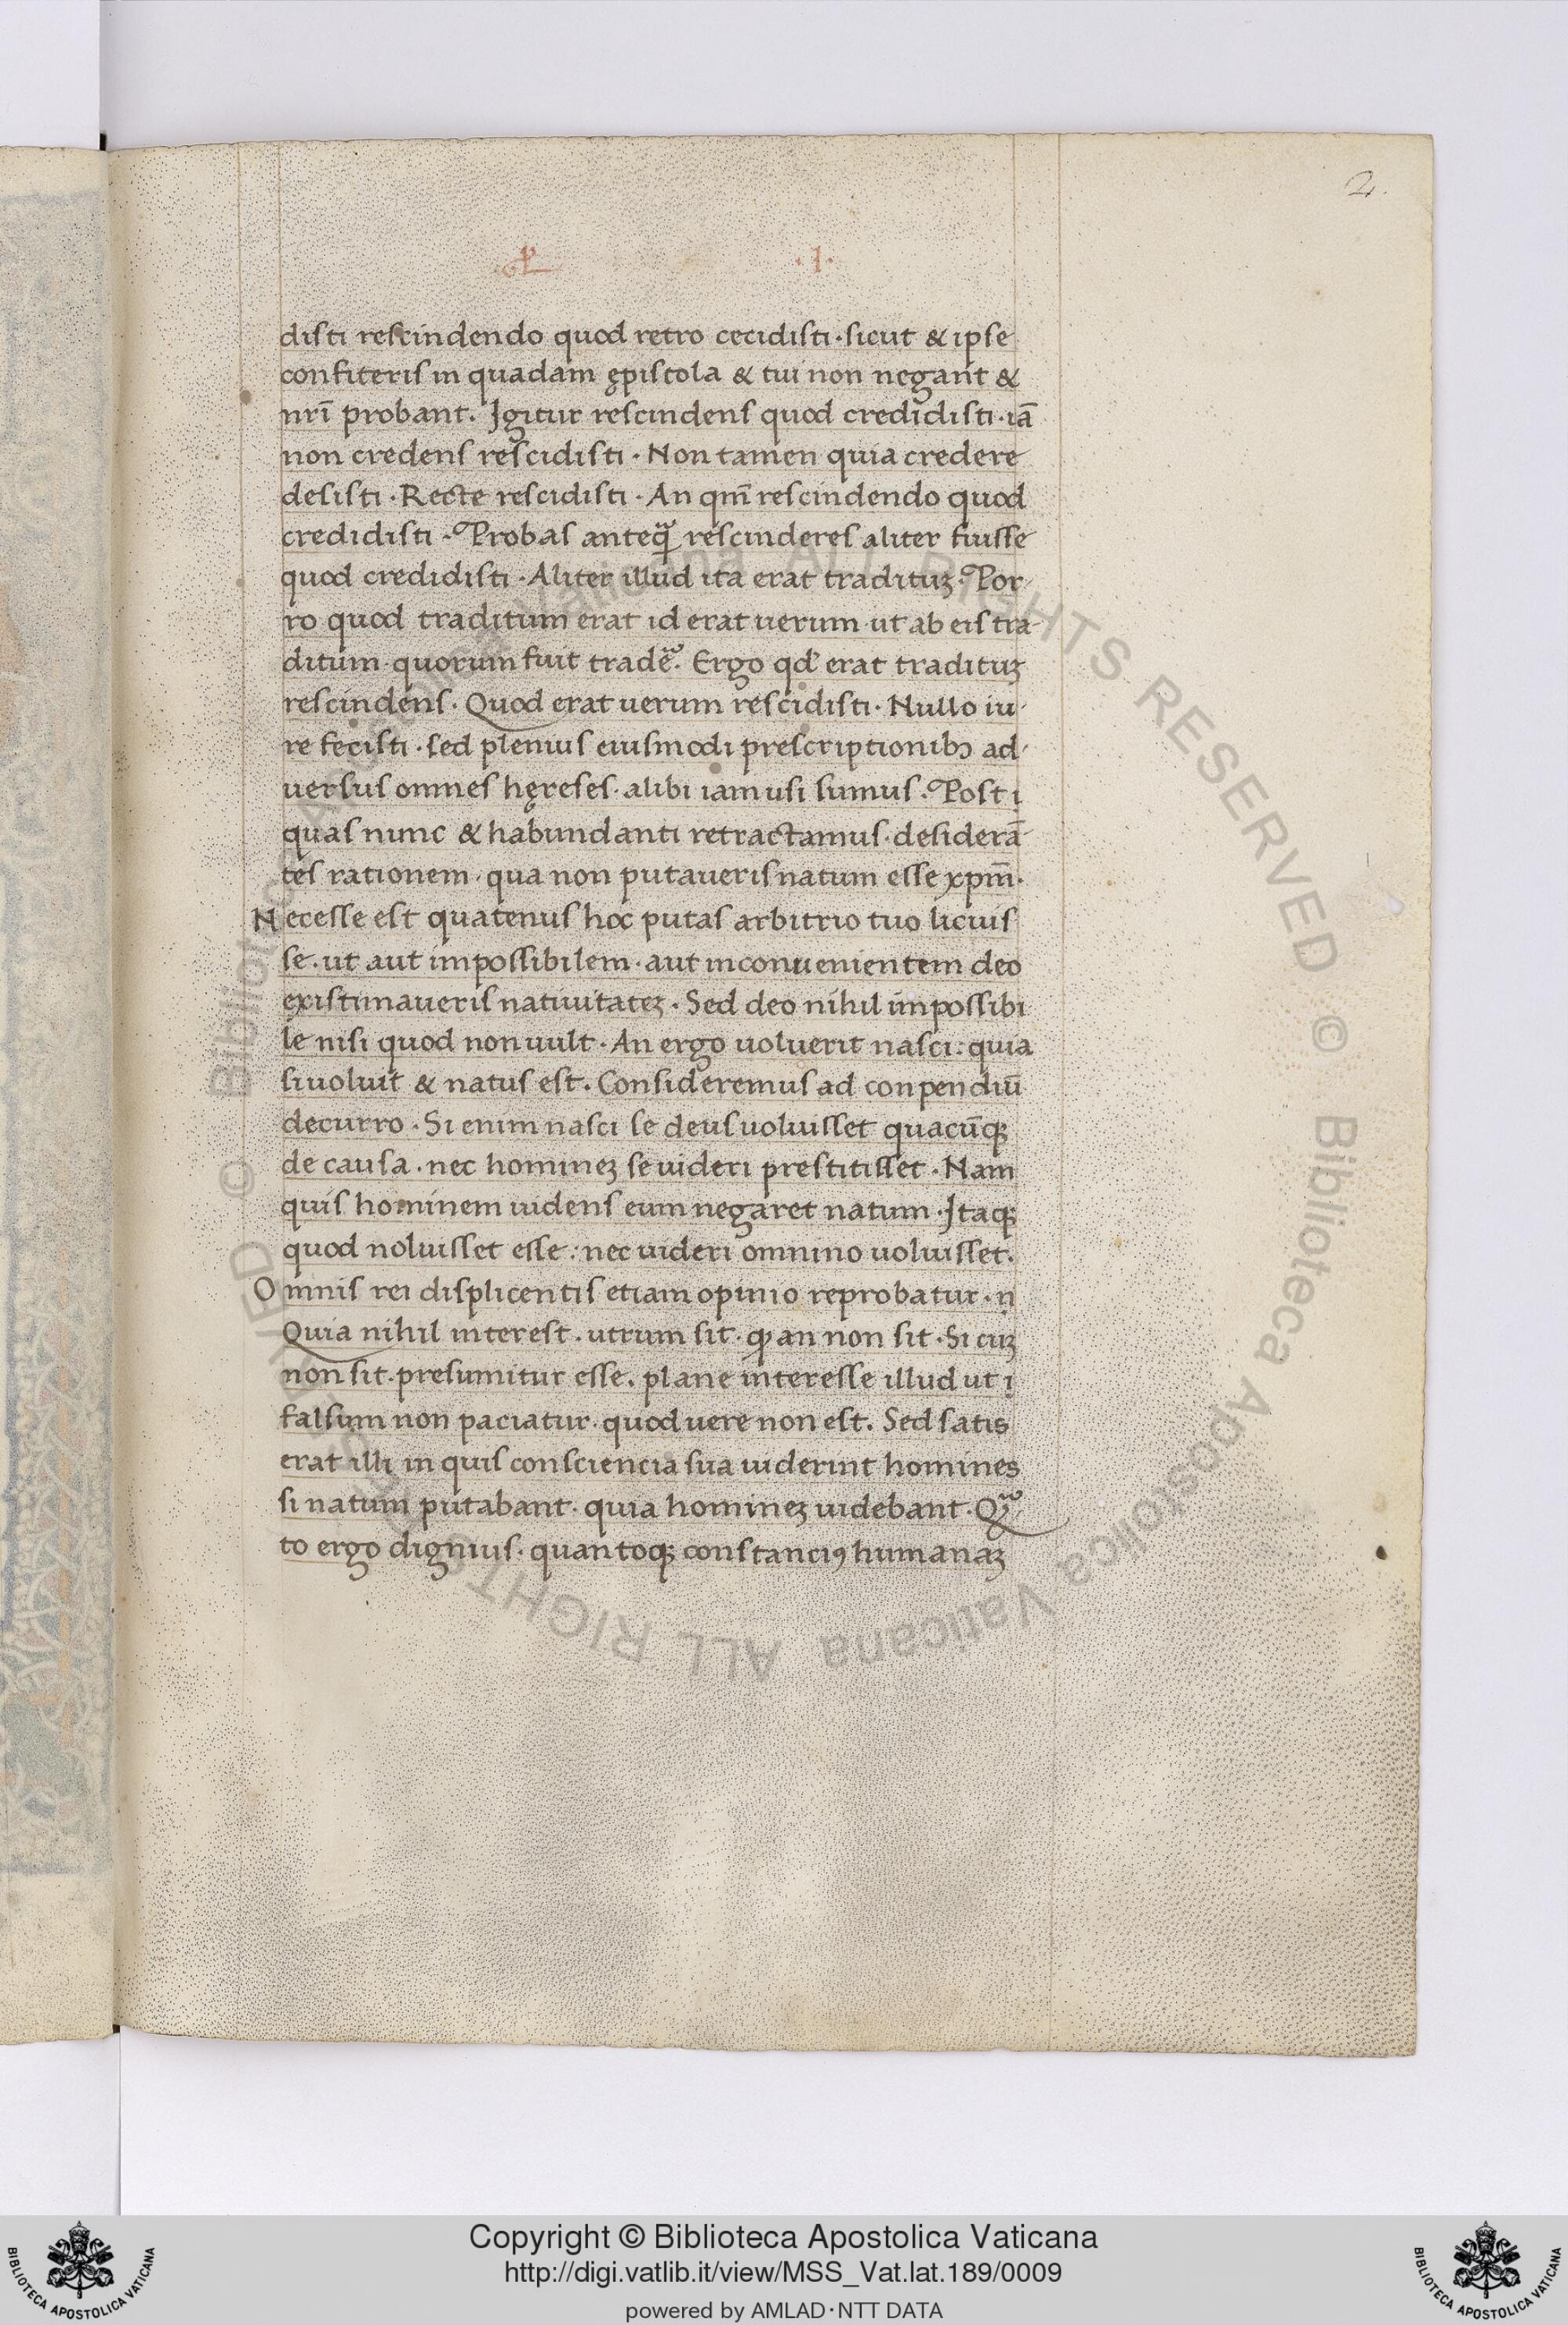 2.
·I·
disti rescindendo quod retro cecidisti · sicut & ipse
confiteris in quadam ępistola & tui non negant &
nrī probant. Igitur rescindens quod credidisti · iā
non credens rescidisti · Non tamen quia credere
desisti · Recte rescidisti · An qm̄ rescindendo quod
credidisti · Probas anteqᷓ rescinderes aliter fuisse
quod credidisti · Aliter illud ita erat tradituꝫ · Por-
ro quod traditum erat id erat uerum · ut ab eis tra-
ditum · quorum fuit tradeᷓ. Ergo qđ erat tradituꝫ
rescindens. Quod erat uerum rescidisti · Nullo iu-
re fecisti · sed plenius eiusmodi prescriptionibꝫ ad-
uersus omnes hęreses · alibi iam usi sumus · Post ị
quas nunc & habundanti retractamus · desiderā-
tes rationem · qua non putaueris natum esse xpm̄·
Necesse est quatenus hoc putas arbitrio tuo licuis
se · ut aut impossibilem · aut inconuenientem deo
existimaueris natiuitateꝫ · Sed deo nihil impossibi
le nisi quod non uult · An ergo uoluerit nasci: quia
si uoluit & natus est. Consideremus ad conpendiū
decurro · Si enim nasci se deus uoluisset quacūqꝫ
de causa · nec homineꝫ se uideri prestitisset · Nam
quis hominem uidens eum negaret natum · Itaqꝫ
quod noluisset esse: nec uideri omnino uoluisset.
Omnis rei displicentis etiam opinio reprobatur · ṇ
Quia nihil interest · utrum sit · ꝙ an non sit · Si cuꝫ
non sit · presumitur esse. plane interesse illud ut ị
falsum non paciatur · quod uere non est. Sed satis
erat illi in quis consciencia sua uiderint homines
si natum putabant · quia homineꝫ uidebant · Qᷓ
to ergo dignius · quantoqꝫ constanciꝰ humanaꝫ
Copyright © Biblioteca Apostolica Vaticana
http://digi.vatlib.it/view/MSS_Vat.lat.189/0009
powered by AMLAD·NTT DATA
BIBLIOTECA APOSTOLICA VATICANA
BIBLIOTECA APOSTOLICA VATICANA
© Biblioteca Apostolica Vaticana ALL RIGHTS RESERVED
© Biblioteca Apostolica Vaticana ALL RIGHTS RESERVED